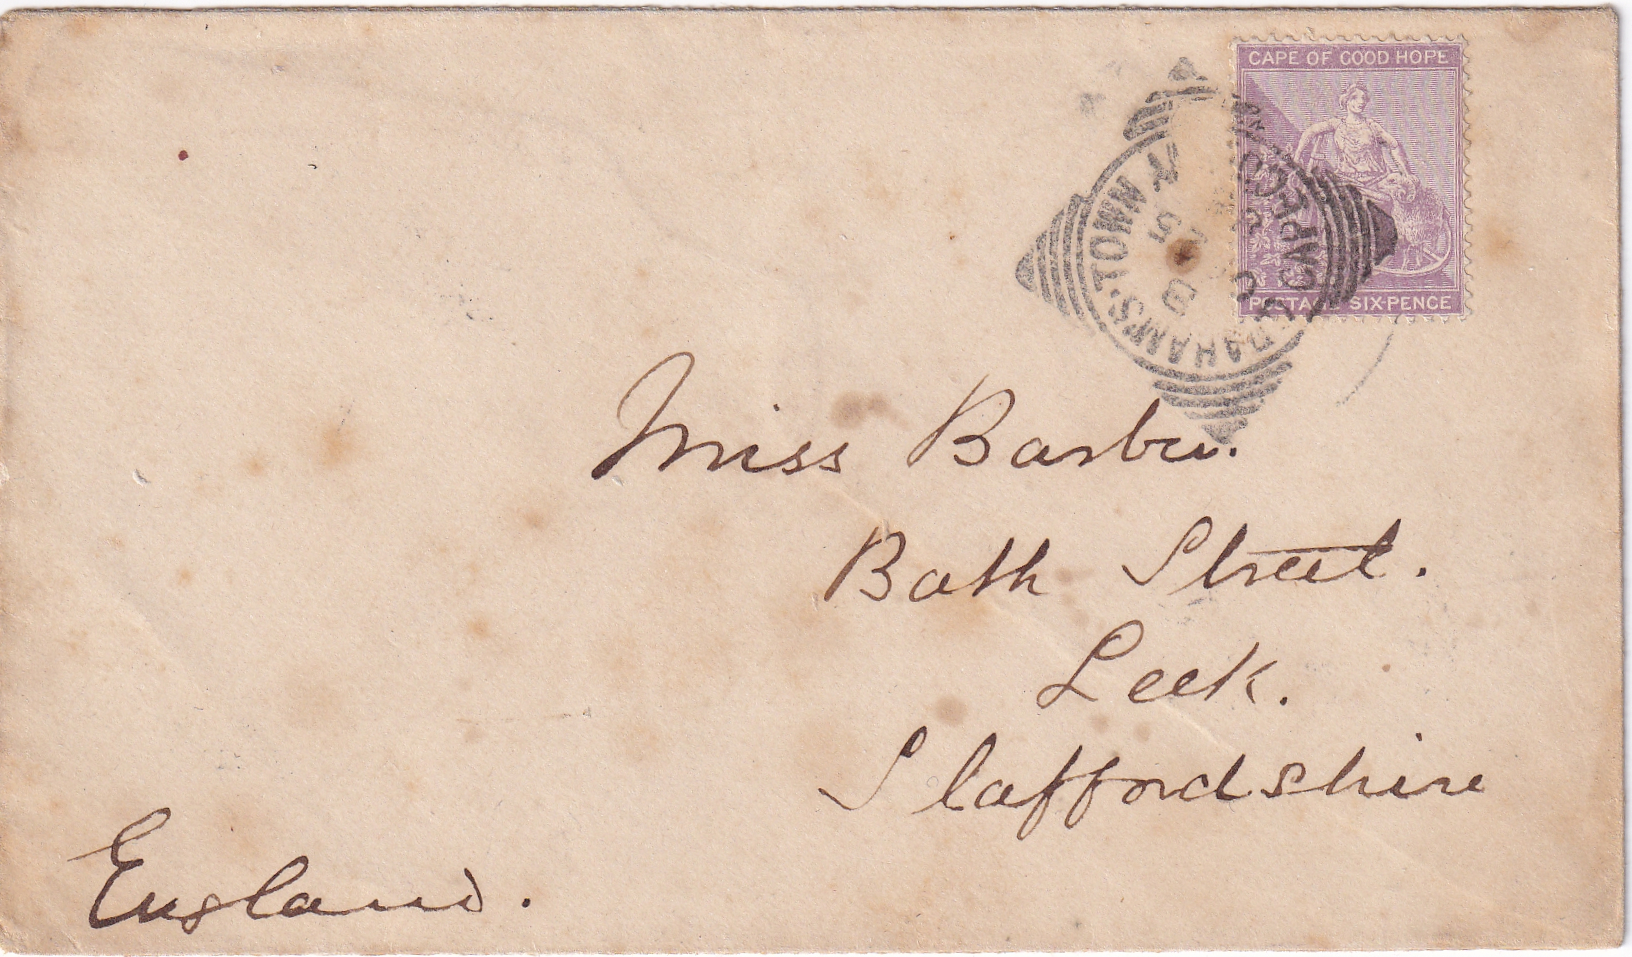 CAPE OF GOOD HOPE
POSTAGE SIX-PENCE
Miss Barber.
Bath Street.
Leek.
Staffordshire
England.